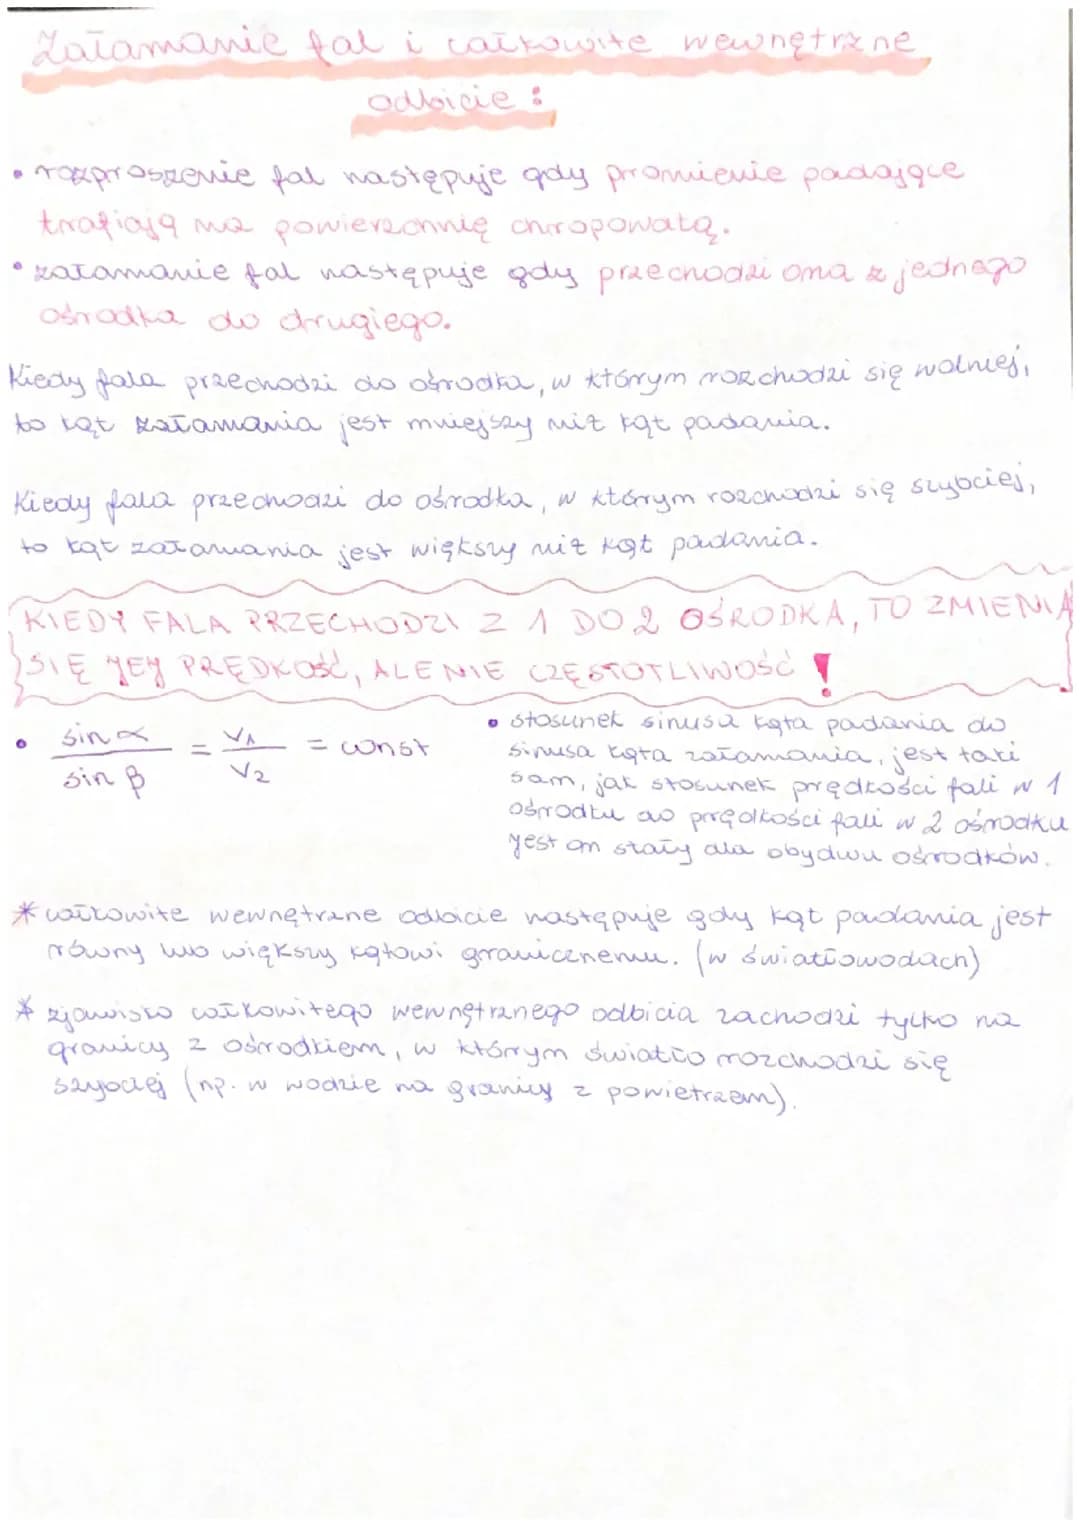 Załamanie fal i całkowite wewnętrzne
odbicie :
• rozproszenie fal następuje gdy promienie padające
trafiają na powierzchnię chropowatą.
• załamanie fal następuje gdy przechodzi ona z jednego
ośrodka do drugiego.
Kiedy fala przechodzi do ośrodka, w którym rozchodzi się wolniej,
to kąt załamania jest mniejszy niż kąt padania.
Kiedy fala przechodzi do ośrodka, w którym rozchodzi się szybciej,
to kąt załamania jest większy niż kąt padania.
KIEDY FALA PRZECHODZI Z 1 DO 2 OŚRODKA, TO ZMIENIA
SIĘ JEJ PRĘDKOŚĆ, ALE NIE CZĘSTOTLIWOŚĆ !
• sin α / sin β = V1 / V2 = const
• stosunek sinusa kąta padania do
sinusa kąta załamania, jest taki
sam, jak stosunek prędkości fali w 1
ośrodku do prędkości fali w 2 ośrodku
jest on stały dla obydwu ośrodków.
* całkowite wewnętrzne odbicie następuje gdy kąt padania jest
równy lub większy kątowi granicznemu. (w światłowodach)
* zjawisko całkowitego wewnętrznego odbicia zachodzi tylko na
granicy z ośrodkiem, w którym światło rozchodzi się
szybciej (np. w wodzie na granicy z powietrzem).